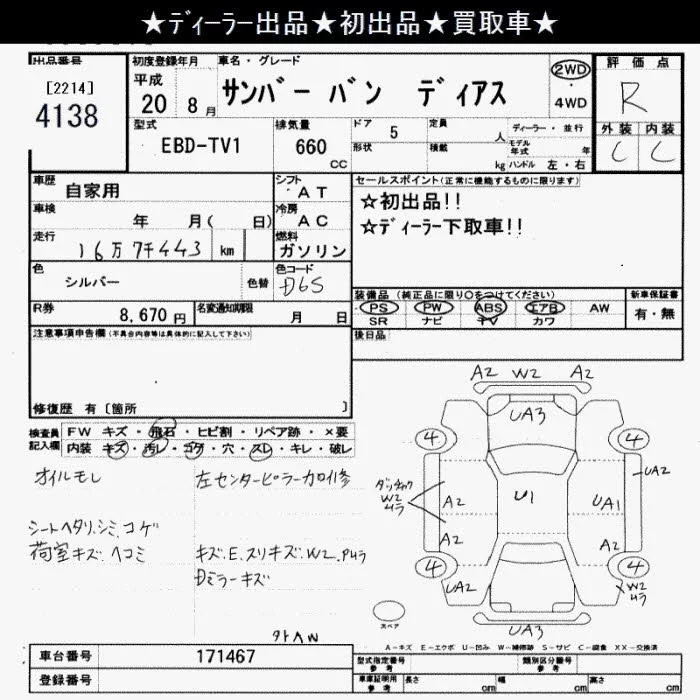 ★ディーラー出品★初出品★買取車★
出品番号
[2214]
4138
初度登録年月
平成
20 8月
車名・グレード
サンバー バン ディアス
2WD
・
4WD
評価点
R
外装 内装
C C
型式
EBD-TV1
排気量
660
CC
ドア 5
形状
定員 人
積載 kg
ディーラー・並行
モデル年式 年
ハンドル 左・右
車歴
自家用
シフト
AT
車検
年 月( 日)
冷房
AC
走行
16万7千443 km
燃料
ガソリン
色
シルバー
色替
色コード
D6S
R券
8,670円
名変通知期限
月 日
セールスポイント(正常に機能するものに限ります)
☆初出品!!
☆ディーラー下取車!!
装備品 (純正品に限り○をつけてください)
PS PW ABS エアB AW
SR ナビ TV カワ
新車保証書
有・無
注意事項申告欄(不具合内容等は具体的に記入して下さい)
修復歴 有〔箇所 〕
後日品
検査員
記入欄
FW キズ・飛石・ヒビ割・リペア跡・×要
内装 キズ・汚レ・コゲ・穴・スレ・キレ・破レ
オイルモレ
左センターピラー加工修
シートヘタリ.シミ.コゲ
荷室キズ.ヘコミ
キズ.E.スリキズ.W2.Pムラ
Dミラーキズ
外トAW
A2 W2 A2
UA3
4 4
W2
ムラ
A2
U1
UA1
UA2
A2
A2
4 4
UA2
W2
ムラ
UA3
スペア
A-キズ E-エクボ U-凹み W-補修跡 S-サビ C-腐食 XX-交換済
車台番号 171467
登録番号
型式指定番号
参考
類別区分番号
参考
車庫証明用
参考
長さ cm
幅 cm
高さ cm